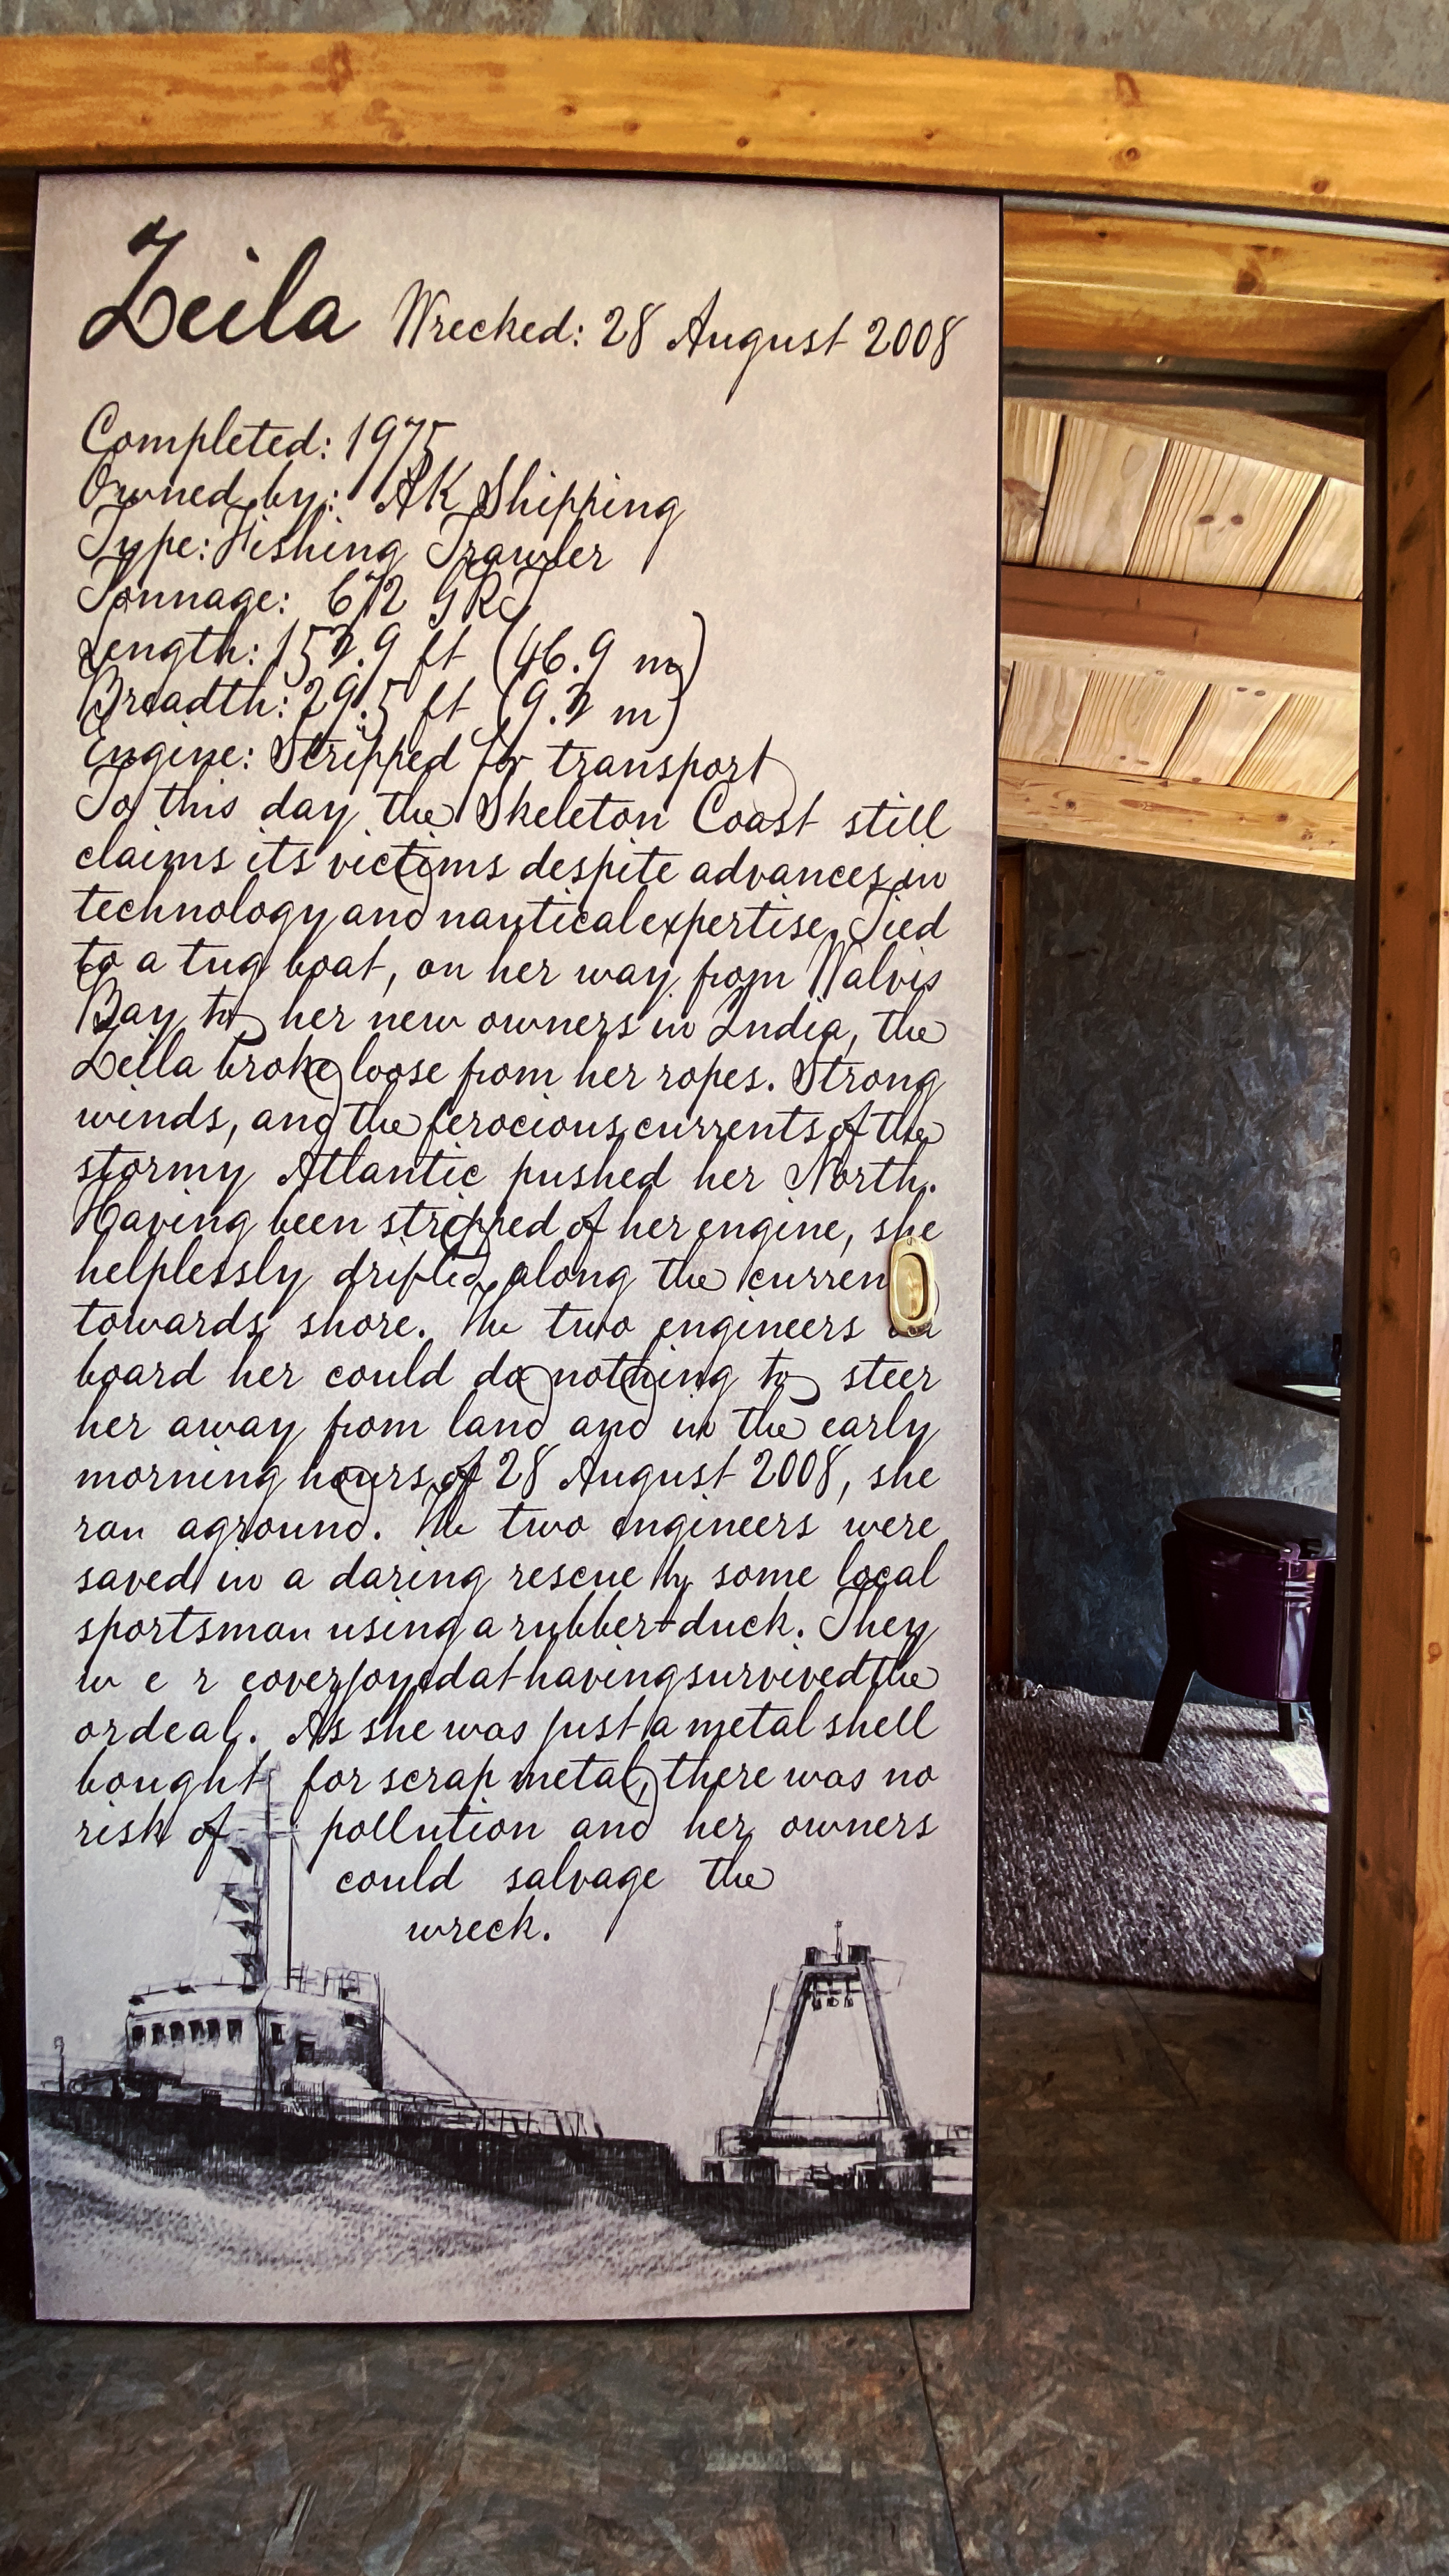 Zeila Wrecked: 28 August 2008
Completed: 1975
Owned by: AK Shipping
Type: Fishing Trawler
Tonnage: 672 GRT
Length: 153.9 ft (46.9 m)
Breadth: 29.5 ft (9.3 m)
Engine: Stripped for transport
To this day the Skeleton Coast still
claims its victims despite advances in
technology and nautical expertise. Tied
to a tug boat, on her way from Walvis
Bay to her new owners in India, the
Zeila broke loose from her ropes. Strong
winds, and the ferocious currents of the
stormy Atlantic pushed her North.
Having been stripped of her engine, she
helplessly drifted along the curren
towards shore. The two engineers on
board her could do nothing to steer
her away from land and in the early
morning hours of 28 August 2008, she
ran aground. The two engineers were
saved in a daring rescue by some local
sportsman using a rubber-duck. They
w e r eoverjoyedathavingsurvivedthe
ordeal. As she was just a metal shell
bought for scrap metal, there was no
risk of pollution and her owners
could salvage the
wreck.